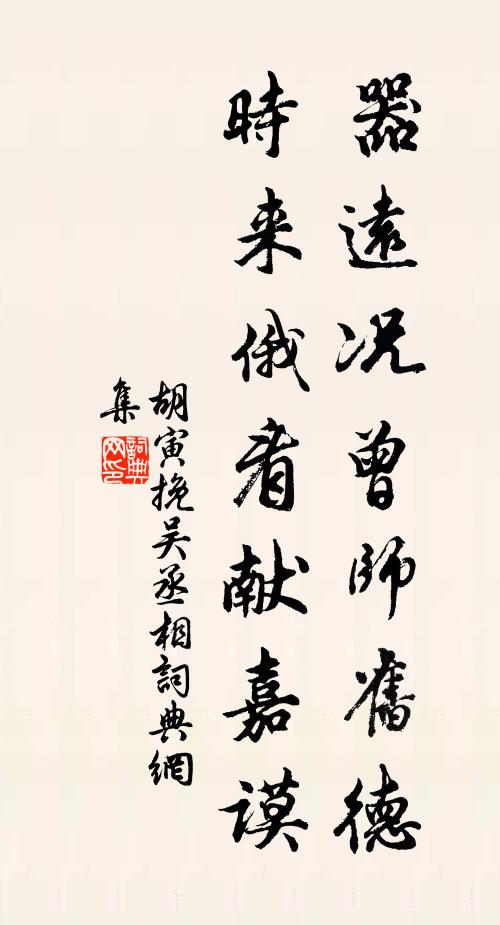 器遠况曾師舊德
時来俄看献嘉謨
胡寅挽吴丞相詞典網
集
詞典網印